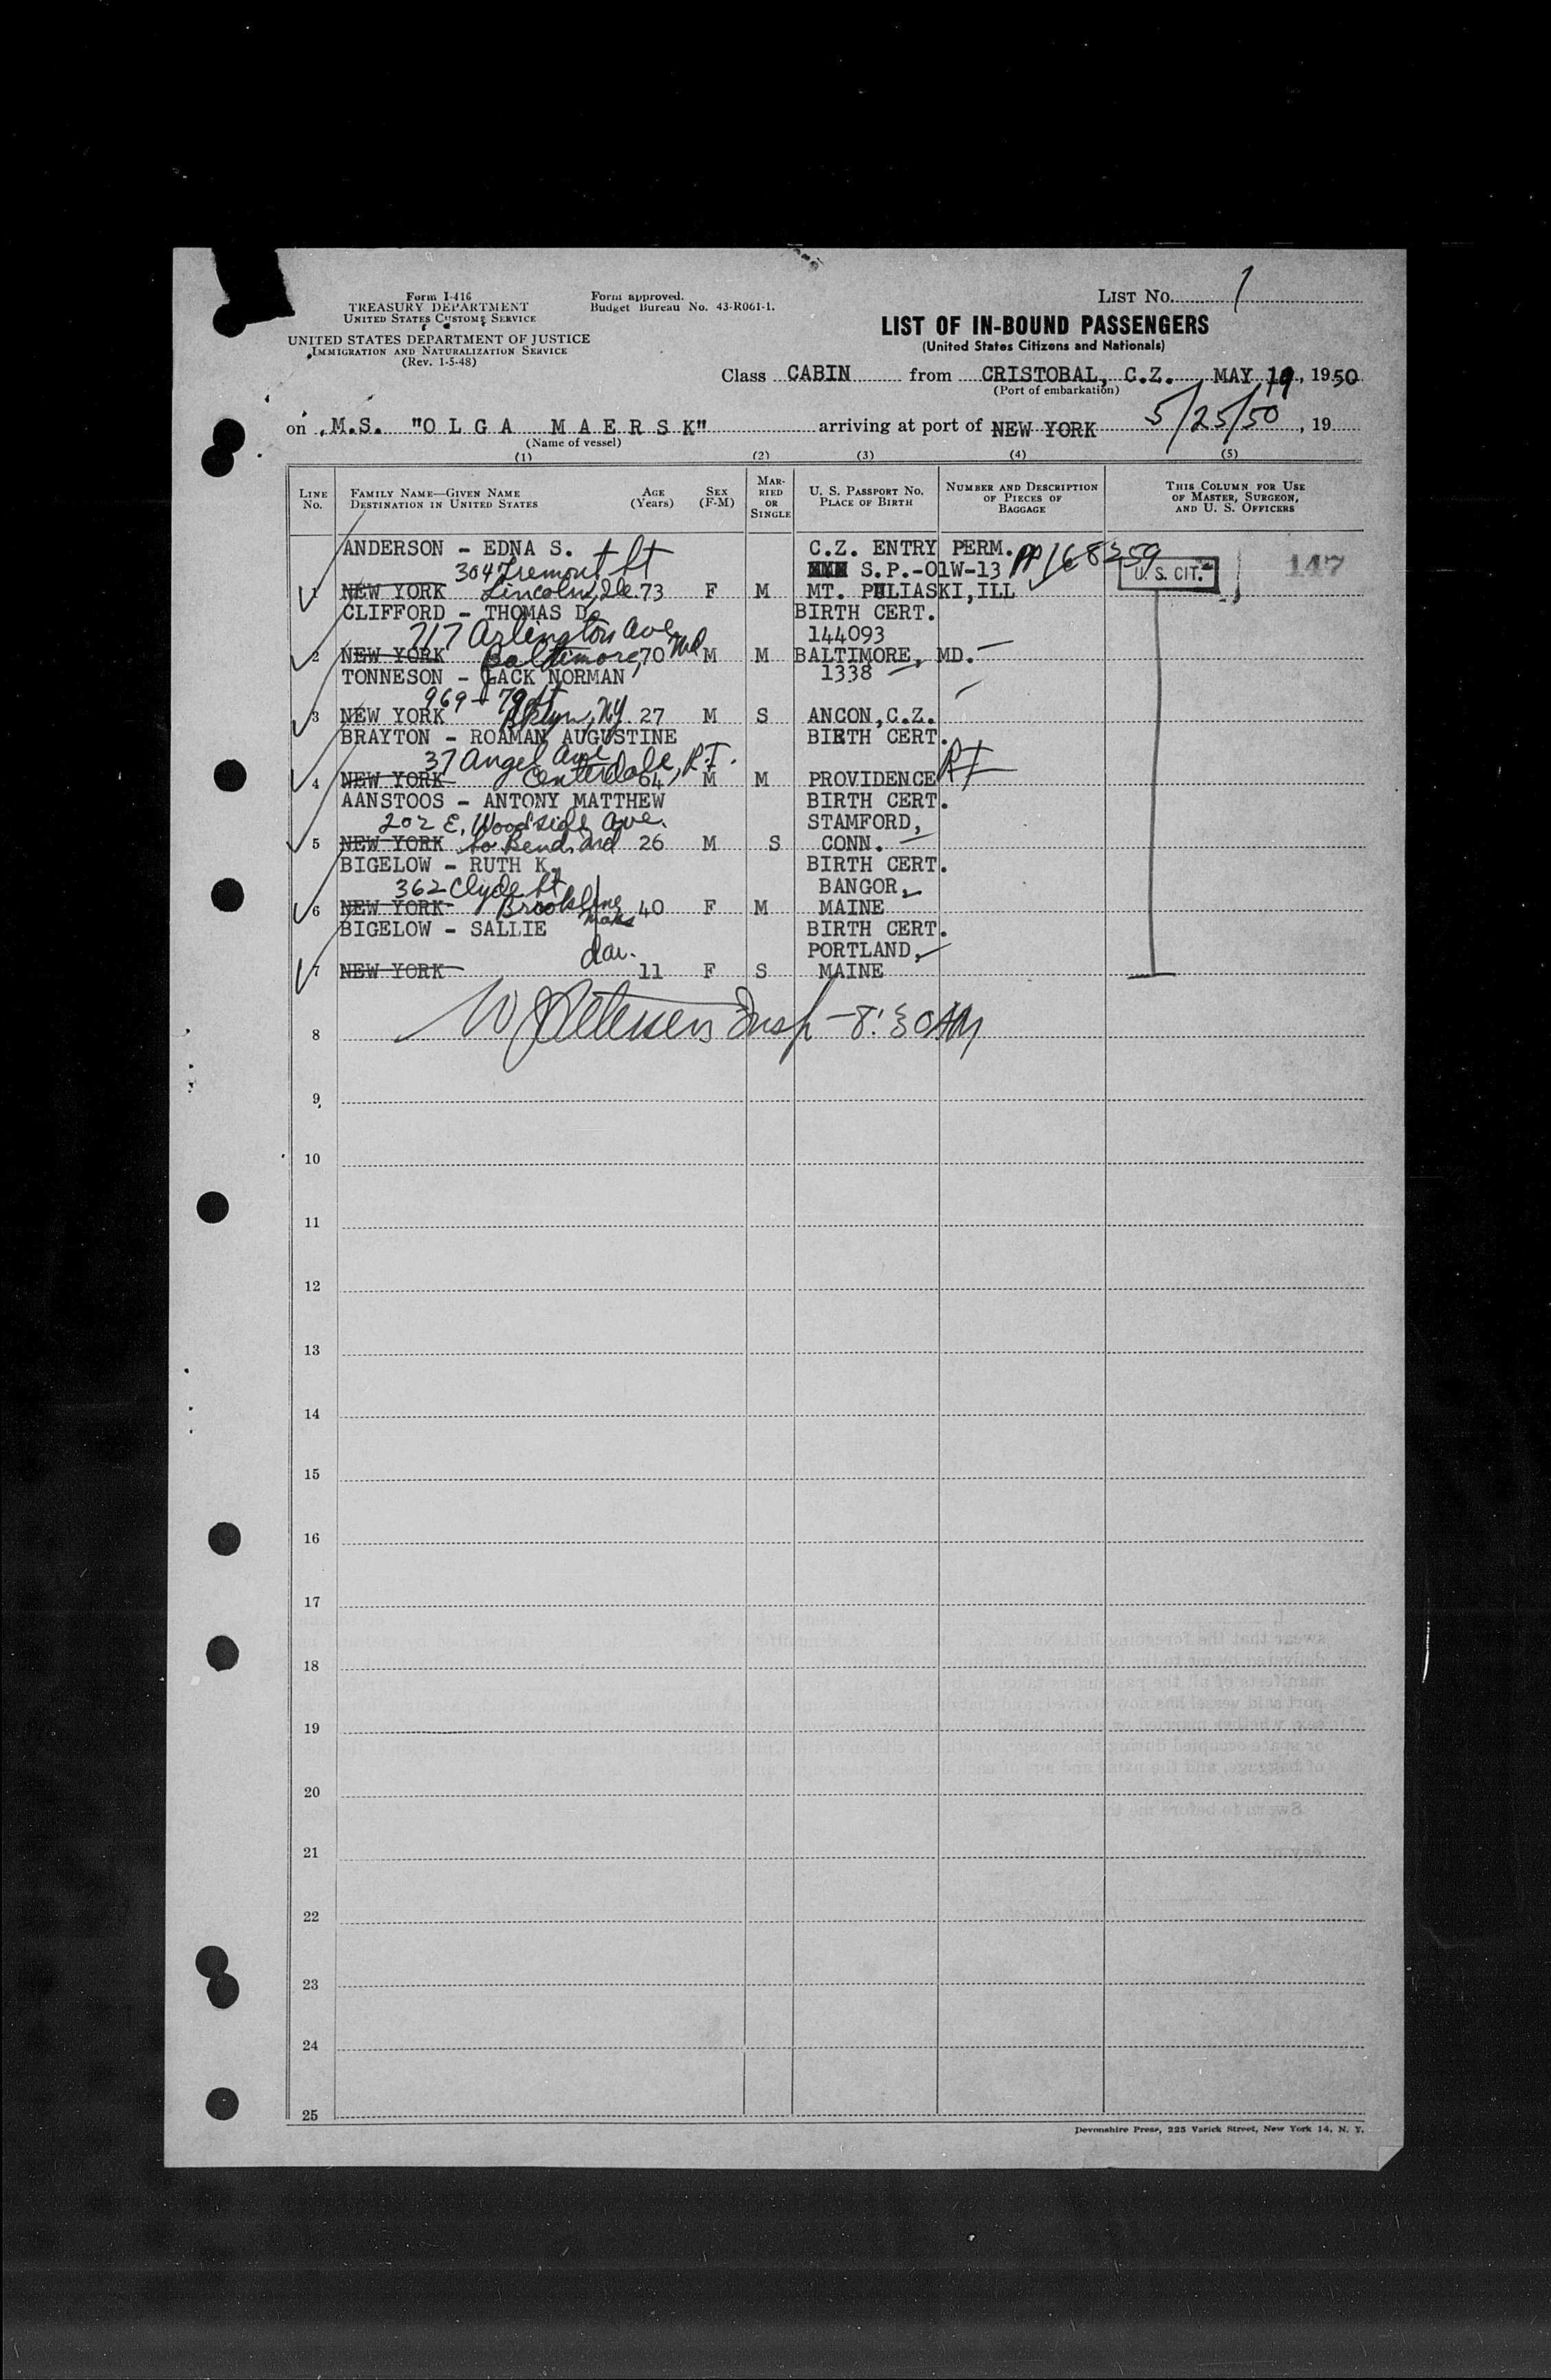 Form I-416
TREASURY DEPARTMENT
UNITED STATES CUSTOMS SERVICE
UNITED STATES DEPARTMENT OF JUSTICE
IMMIGRATION AND NATURALIZATION SERVICE
(Rev. 1-5-48)
Form approved.
Budget Bureau No. 43-R061-1.
LIST NO. 1
LIST OF IN-BOUND PASSENGERS
(United States Citizens and Nationals)
Class CABIN from CRISTOBAL, C.Z. MAY 19, 1950
(Port of embarkation)
on M.S. "OLGA MAERSK" arriving at port of NEW YORK 5/25/50, 19
(Name of vessel)
(1) (2) (3) (4) (5)
LINE NO.
FAMILY NAME—GIVEN NAME
DESTINATION IN UNITED STATES
AGE (Years)
SEX (F-M)
MARRIED OR SINGLE
U. S. PASSPORT NO.
PLACE OF BIRTH
NUMBER AND DESCRIPTION OF PIECES OF BAGGAGE
THIS COLUMN FOR USE OF MASTER, SURGEON, AND U. S. OFFICERS
ANDERSON - EDNA S. C.Z. ENTRY PERM.
304 Tremont St S.P.-01W-13 PP 168359 U. S. CIT. 147
1 NEW YORK Lincoln, Ill. 73 F M MT. PULIASKI, ILL
CLIFFORD - THOMAS D. BIRTH CERT.
717 Arlington Ave 144093
2 NEW YORK Baltimore, Md 70 M M BALTIMORE, MD.
TONNESON - JACK NORMAN 1338
969 - 79 St
3 NEW YORK Bklyn, NY 27 M S ANCON, C.Z.
BRAYTON - ROAMAN AUGUSTINE BIRTH CERT.
37 Angel Ave
4 NEW YORK Centerdale, R.I. 64 M M PROVIDENCE RI
AANSTOOS - ANTONY MATTHEW BIRTH CERT.
202 E. Woodside Ave. STAMFORD,
5 NEW YORK So Bend, Ind 26 M S CONN.
BIGELOW - RUTH K. BIRTH CERT.
362 Clyde St BANGOR,
6 NEW YORK Brookline Mass 40 F M MAINE
BIGELOW - SALLIE BIRTH CERT.
dau. PORTLAND,
7 NEW YORK 11 F S MAINE
8 Insp - 8:30 AM
9
10
11
12
13
14
15
16
17
18
19
20
21
22
23
24
25
Devonshire Press, 225 Varick Street, New York 14, N. Y.